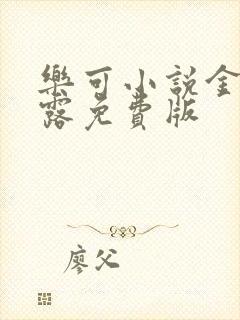 樂可小說金
露免費版
廖父